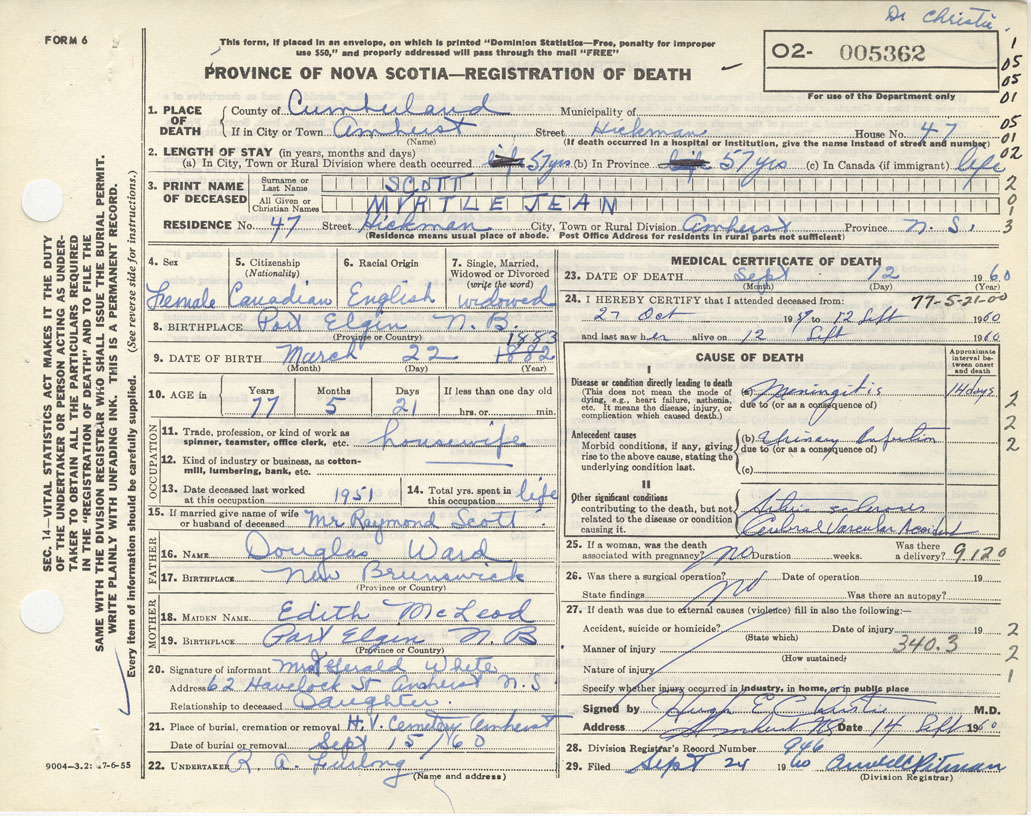 Dr Christie
FORM 6
This form, if placed in an envelope, on which is printed "Dominion Statistics—Free, penalty for improper
use $50," and properly addressed will pass through the mail "FREE"
PROVINCE OF NOVA SCOTIA—REGISTRATION OF DEATH
02- 005362
For use of the Department only
1
05
05
01
05
01
02
2
0
1
3
1. PLACE OF DEATH
County of Cumberland Municipality of
If in City or Town Amherst Street Hickman House No. 47
(Name) (If death occurred in a hospital or institution, give the name instead of street and number)
2. LENGTH OF STAY (in years, months and days)
(a) In City, Town or Rural Division where death occurred life 57 yrs (b) In Province life 57 yrs (c) In Canada (if immigrant) life
3. PRINT NAME OF DECEASED
Surname or Last Name SCOTT
All Given or Christian Names MYRTLE JEAN
RESIDENCE No. 47 Street Hickman City, Town or Rural Division Amherst Province N.S.
(Residence means usual place of abode. Post Office Address for residents in rural parts not sufficient)
4. Sex Female
5. Citizenship (Nationality) Canadian
6. Racial Origin English
7. Single, Married, Widowed or Divorced (write the word) widowed
8. BIRTHPLACE Port Elgin N.B.
(Province or Country)
9. DATE OF BIRTH March 22 1882 1883
(Month) (Day) (Year)
10. AGE in Years 77 Months 5 Days 21 If less than one day old hrs. or min.
OCCUPATION
11. Trade, profession, or kind of work as spinner, teamster, office clerk, etc. housewife
12. Kind of industry or business, as cotton-mill, lumbering, bank, etc.
13. Date deceased last worked at this occupation 1951
14. Total yrs. spent in this occupation life
15. If married give name of wife or husband of deceased Mr Raymond Scott
FATHER
16. NAME Douglas Ward
17. BIRTHPLACE New Brunswick
(Province or Country)
MOTHER
18. MAIDEN NAME Edith McLeod
19. BIRTHPLACE Port Elgin N.B
(Province or Country)
20. Signature of informant Mrs Herald White
Address 62 Havelock St Amherst N.S
Relationship to deceased Daughter.
21. Place of burial, cremation or removal H.V. Cemetery Amherst
Date of burial or removal Sept 15/60
22. UNDERTAKER R. A. Furlong
(Name and address)
MEDICAL CERTIFICATE OF DEATH
23. DATE OF DEATH Sept 12 1960
(Month) (Day) (Year)
24. I HEREBY CERTIFY that I attended deceased from: 77-5-21-00
27 Oct 19 to 12 Sept 1960
and last saw her alive on 12 Sept 1960
CAUSE OF DEATH
Approximate interval between onset and death
I
Disease or condition directly leading to death
(This does not mean the mode of dying, e.g., heart failure, asthenia, etc. It means the disease, injury, or complication which caused death.)
(a) Meningitis 14 days
due to (or as a consequence of)
Antecedent causes
Morbid conditions, if any, giving rise to the above cause, stating the underlying condition last.
(b) Urinary Infection
due to (or as a consequence of)
(c)
II
Other significant conditions
contributing to the death, but not related to the disease or condition causing it.
Cerebral Vascular Accident
25. If a woman, was the death associated with pregnancy? no Duration weeks. Was there a delivery? 9120
26. Was there a surgical operation? no Date of operation 19
State findings Was there an autopsy?
27. If death was due to external causes (violence) fill in also the following:—
Accident, suicide or homicide? Date of injury 19
(State which)
Manner of injury 340.3
(How sustained)
Nature of injury
Specify whether injury occurred in industry, in home, or in public place
Signed by Hugh E Christie M.D.
Address Amherst NS Date 14 Sept 1960
28. Division Registrar's Record Number 946
29. Filed Sept 24 1960
(Division Registrar)
2
2
2
2
2
1
SEC. 14—VITAL STATISTICS ACT MAKES IT THE DUTY
OF THE UNDERTAKER OR PERSON ACTING AS UNDER-
TAKER TO OBTAIN ALL THE PARTICULARS REQUIRED
IN THE "REGISTRATION OF DEATH" AND TO FILE THE
SAME WITH THE DIVISION REGISTRAR WHO SHALL ISSUE THE BURIAL PERMIT.
WRITE PLAINLY WITH UNFADING INK. THIS IS A PERMANENT RECORD.
Every item of information should be carefully supplied. (See reverse side for instructions.)
9004—3.2: 27-6-55